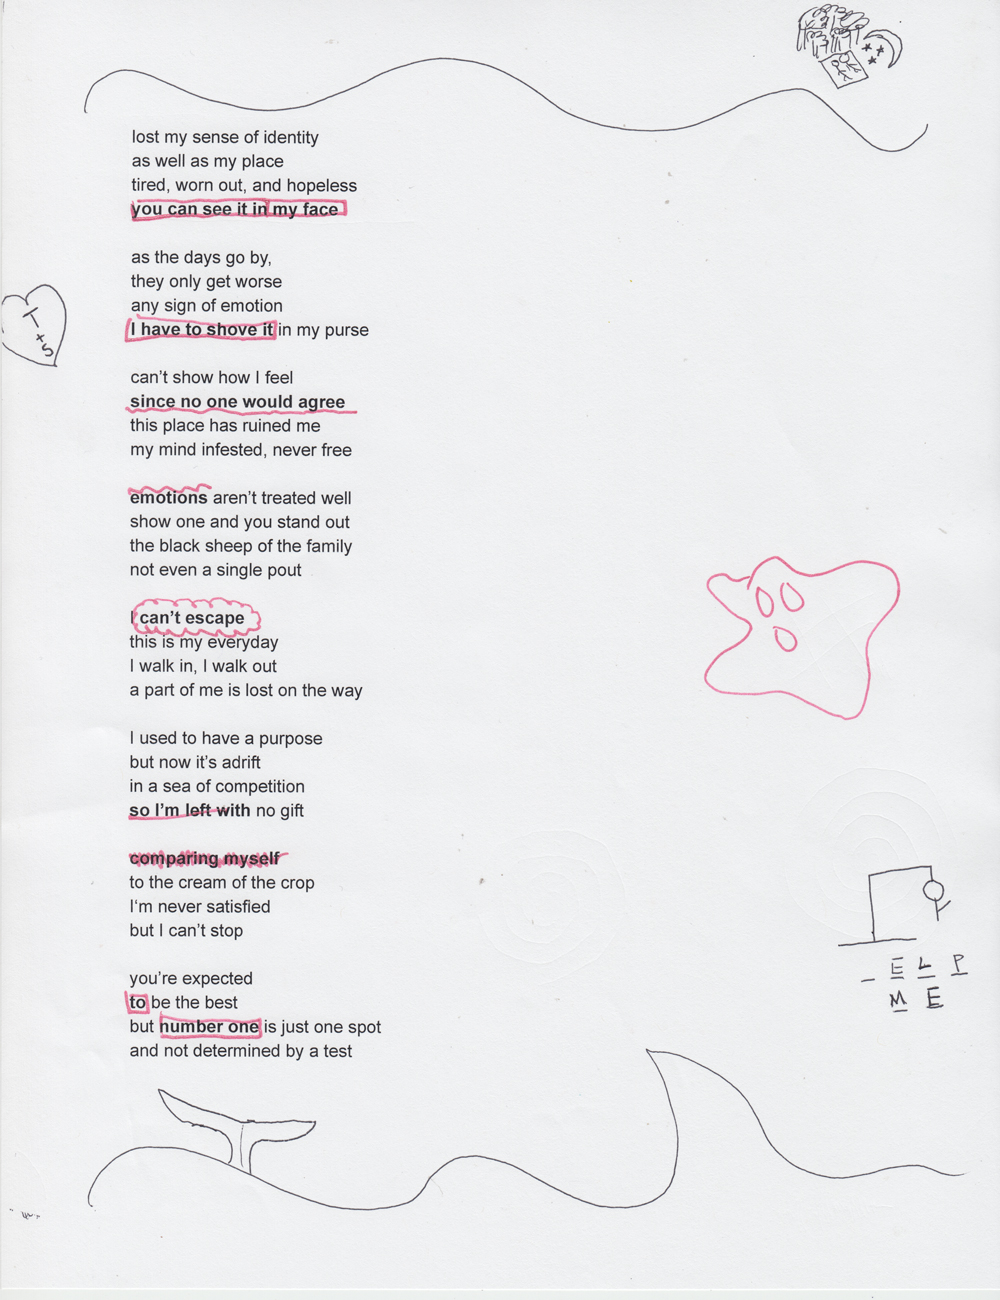 lost my sense of identity
as well as my place
tired, worn out, and hopeless
you can see it in my face
as the days go by,
they only get worse
any sign of emotion
I have to shove it in my purse
T
+
S
can't show how I feel
since no one would agree
this place has ruined me
my mind infested, never free
emotions aren't treated well
show one and you stand out
the black sheep of the family
not even a single pout
I can't escape
this is my everyday
I walk in, I walk out
a part of me is lost on the way
I used to have a purpose
but now it's adrift
in a sea of competition
so I'm left with no gift
comparing myself
to the cream of the crop
I'm never satisfied
but I can't stop
_ E L P
M E
you're expected
to be the best
but number one is just one spot
and not determined by a test